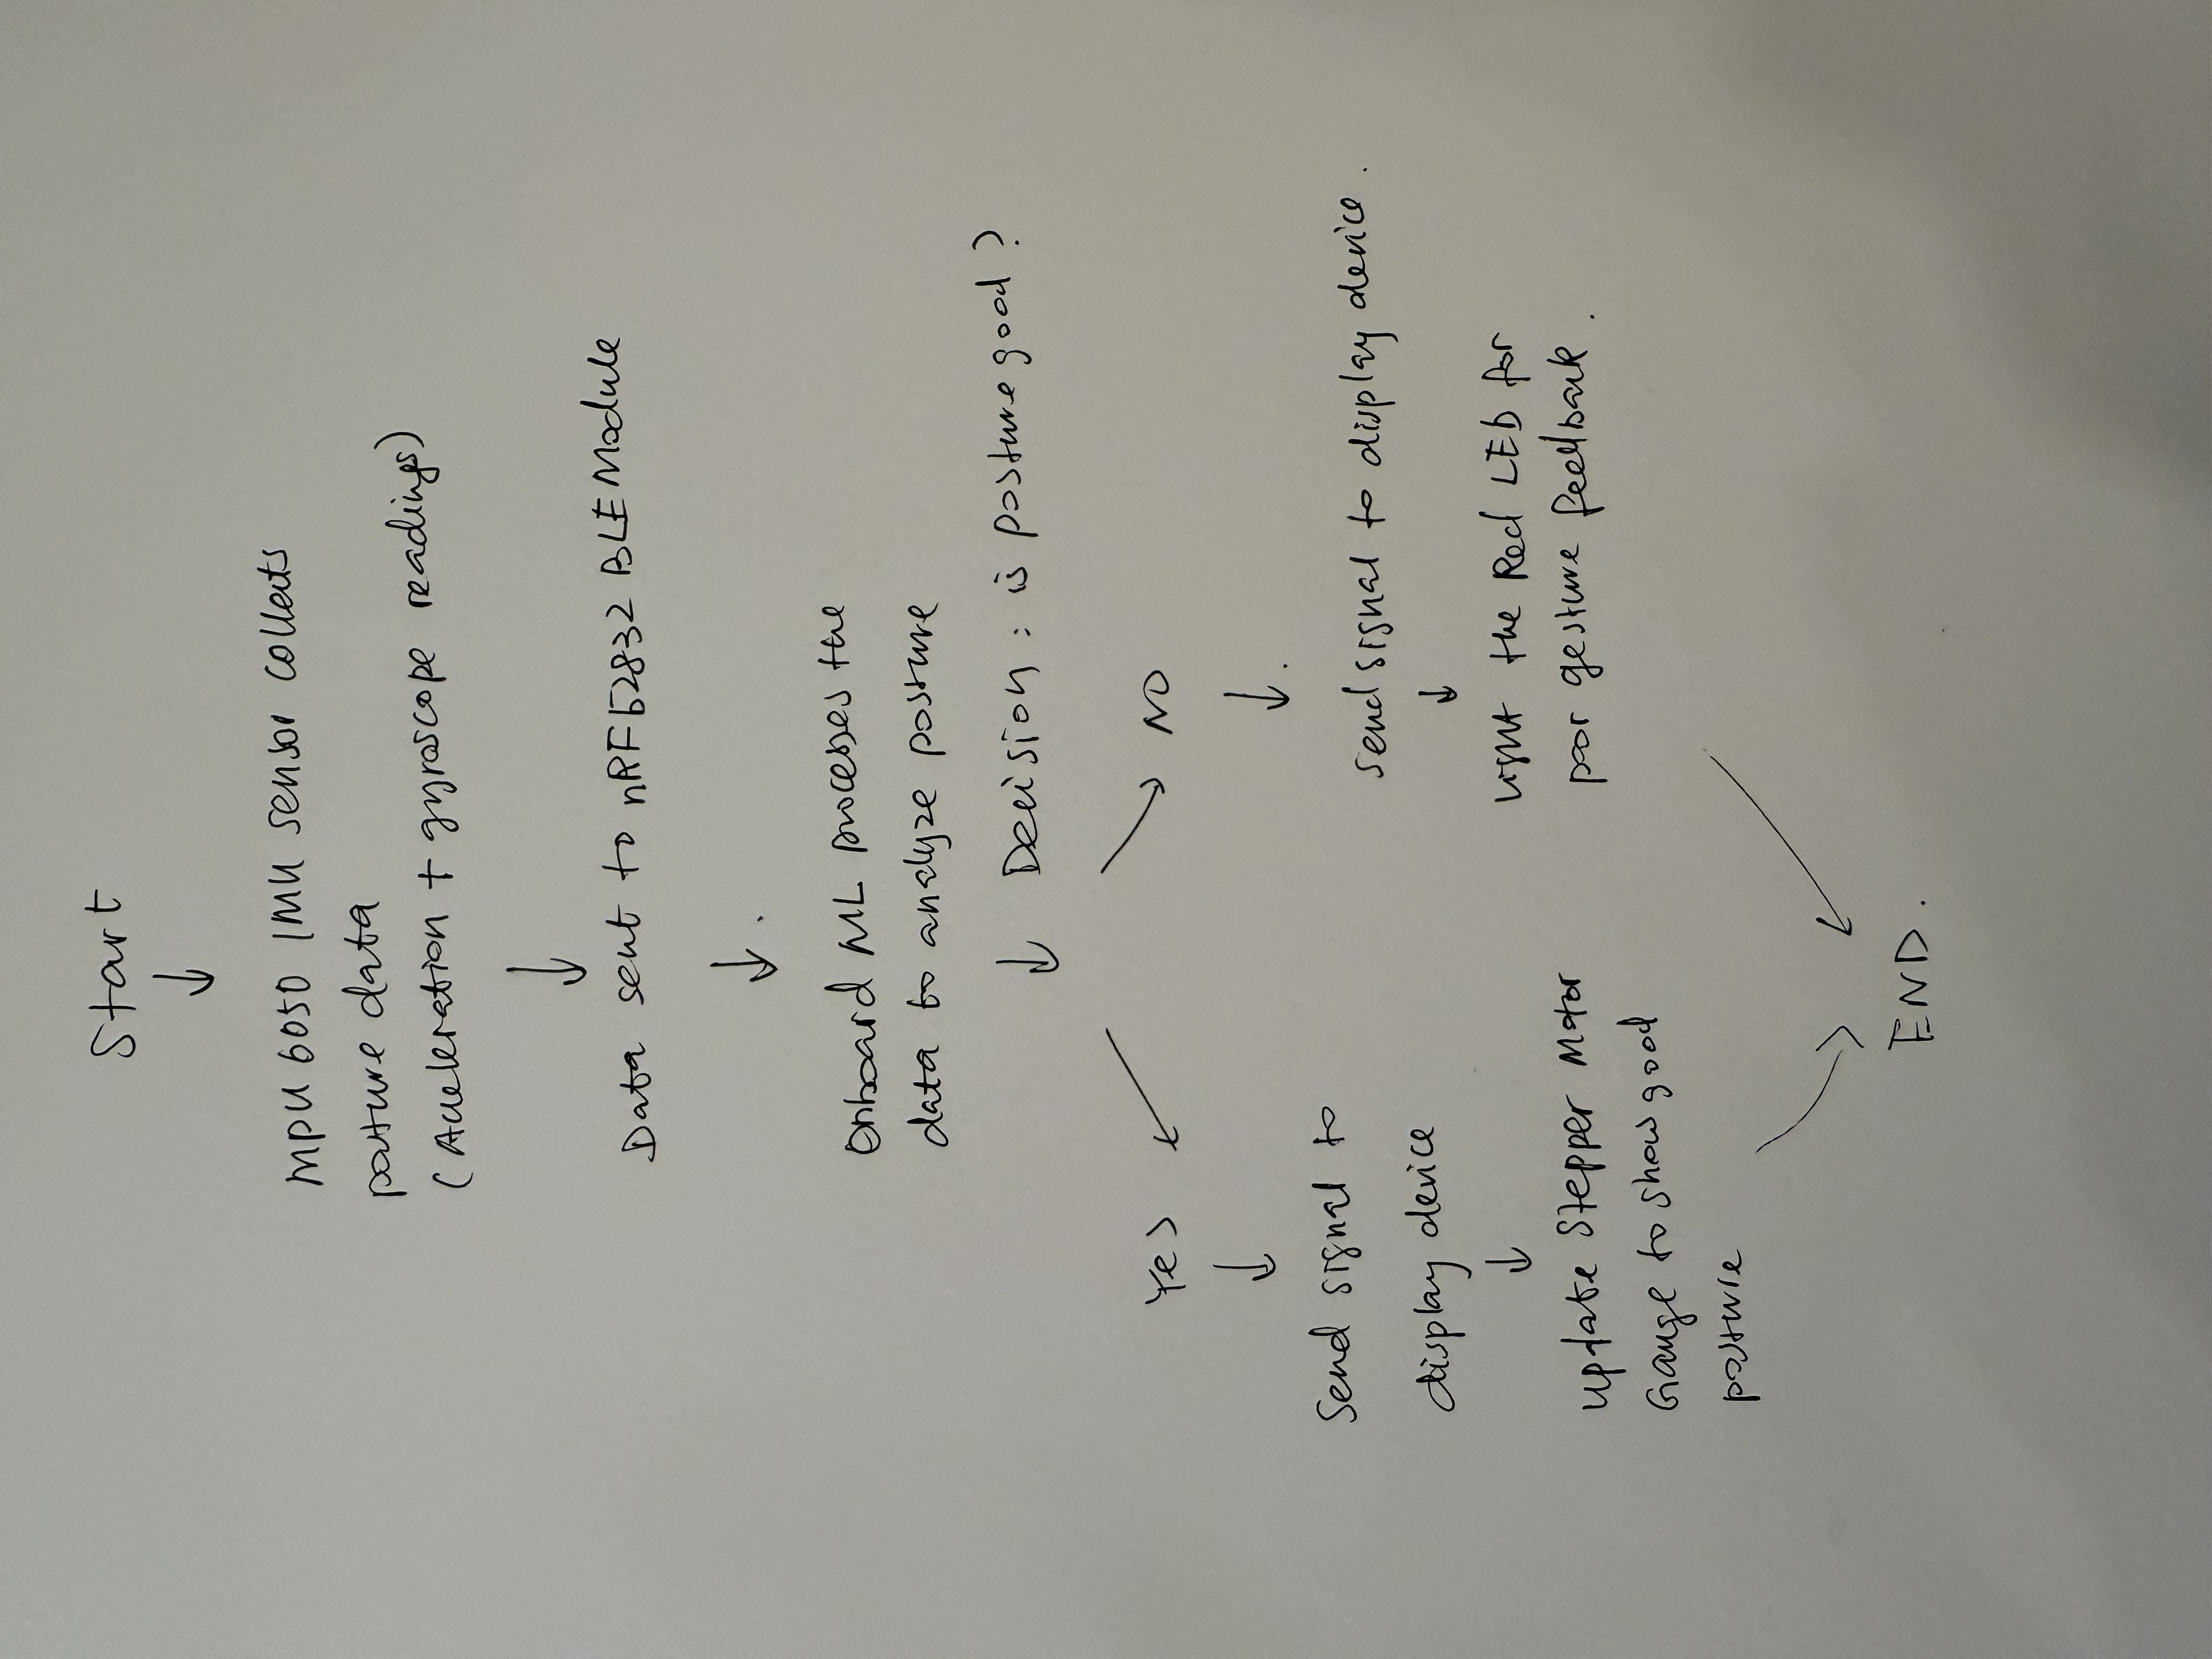 Start
MPU 6050 IMU sensor collects
posture data
(Acceleration + gyroscope readings)
Data sent to nRF52832 BLE Module
Onboard ML processes the
data to analyze posture
Decision : is posture good ?
Yes
NO
Send signal to
display device
Send signal to display device.
Update Stepper Motor
Gauge to show good
posture
Light the Red LED for
poor gesture feedback.
END.